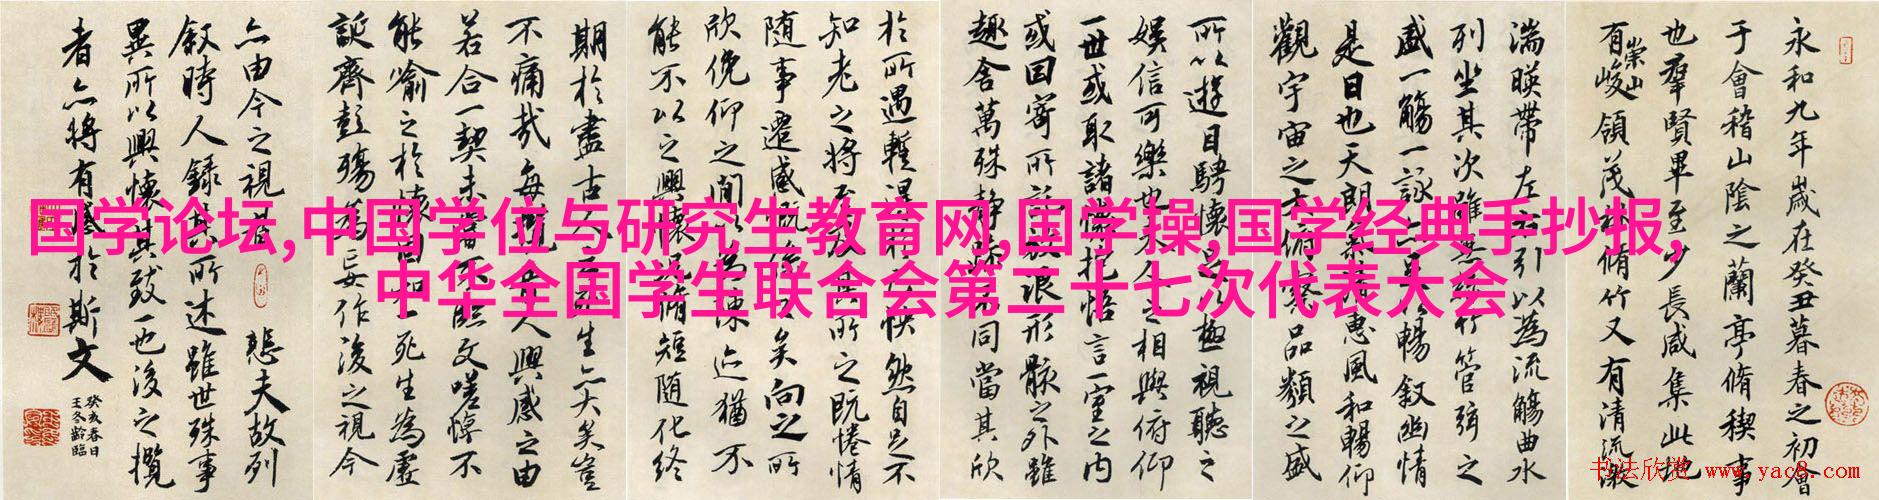 国学论坛,中国学位与研究生教育网,国学操,国学经典手抄报,
中华全国学生联合会第二十七次代表大会
永和九年歲在癸丑暮春之初會
于會稽山陰之蘭亭脩稧事
也羣賢畢至少長咸集此地
有崇山峻領茂林脩竹又有清流激
湍暎帶左右引以為流觴曲水
列坐其次雖無絲竹管弦之
盛一觴一詠亦足以暢敘幽情
是日也天朗氣清惠風和暢仰
觀宇宙之大俯察品類之盛
所以遊目騁懷足以極視聽之
娛信可樂也夫人之相與俯仰
一世或取諸懷抱悟言一室之內
或因寄所託放浪形骸之外雖
趣舍萬殊靜躁不同當其欣
於所遇暫得於己怏然自足不
知老之將至及其所之既惓情
随事遷感慨係之矣向之所
欣俛仰之間以為陳迹猶不
能不以之興懷況脩短随化終
期於盡古人云死生亦大矣豈
不痛哉每攬昔人興感之由
若合一契未嘗不臨文嗟悼不
能喻之於懷固知一死生為虛
誕齊彭殤為妄作後之視今
亦由今之視昔悲夫故列
敘時人錄其所述雖世殊事
異所以興懷其致一也後之攬
者亦將有感於斯文
癸亥春日
王冬齡臨
书法欣赏 www.yac8.com